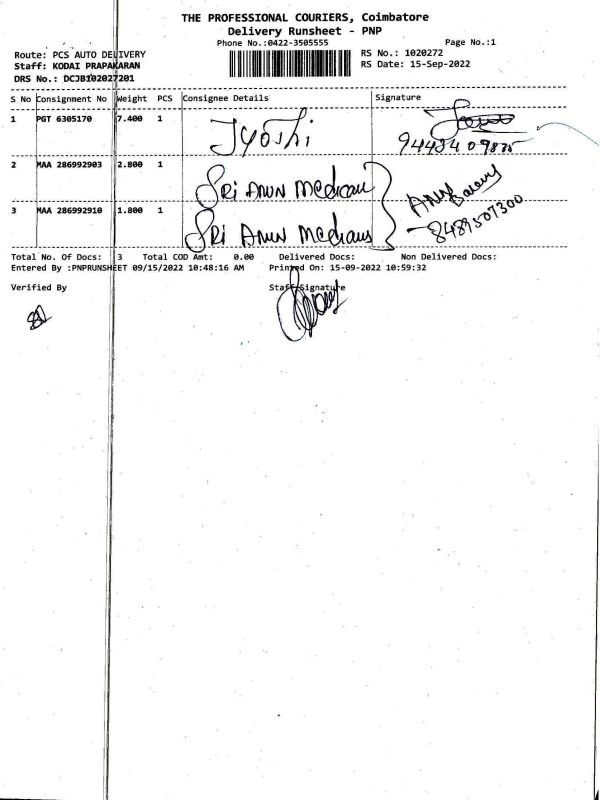 THE PROFESSIONAL COURIERS, Coimbatore
Delivery Runsheet - PNP
Phone No.:0422-3505555 Page No.:1
Route: PCS AUTO DELIVERY RS No.: 1020272
Staff: KODAI PRAPAKARAN RS Date: 15-Sep-2022
DRS No.: DCJB102027201
S No Consignment No Weight PCS Consignee Details Signature
1 PGT 6305170 7.400 1 Jyothi
94434 09875
2 MAA 286992903 2.800 1 SRI ARUN Medical
3 MAA 286992910 1.800 1 SRI ARUN Medicals
8489507300
Total No. Of Docs: 3 Total COD Amt: 0.00 Delivered Docs: Non Delivered Docs:
Entered By :PNPRUNSHEET 09/15/2022 10:48:16 AM Printed On: 15-09-2022 10:59:32
Verified By Staff Signature